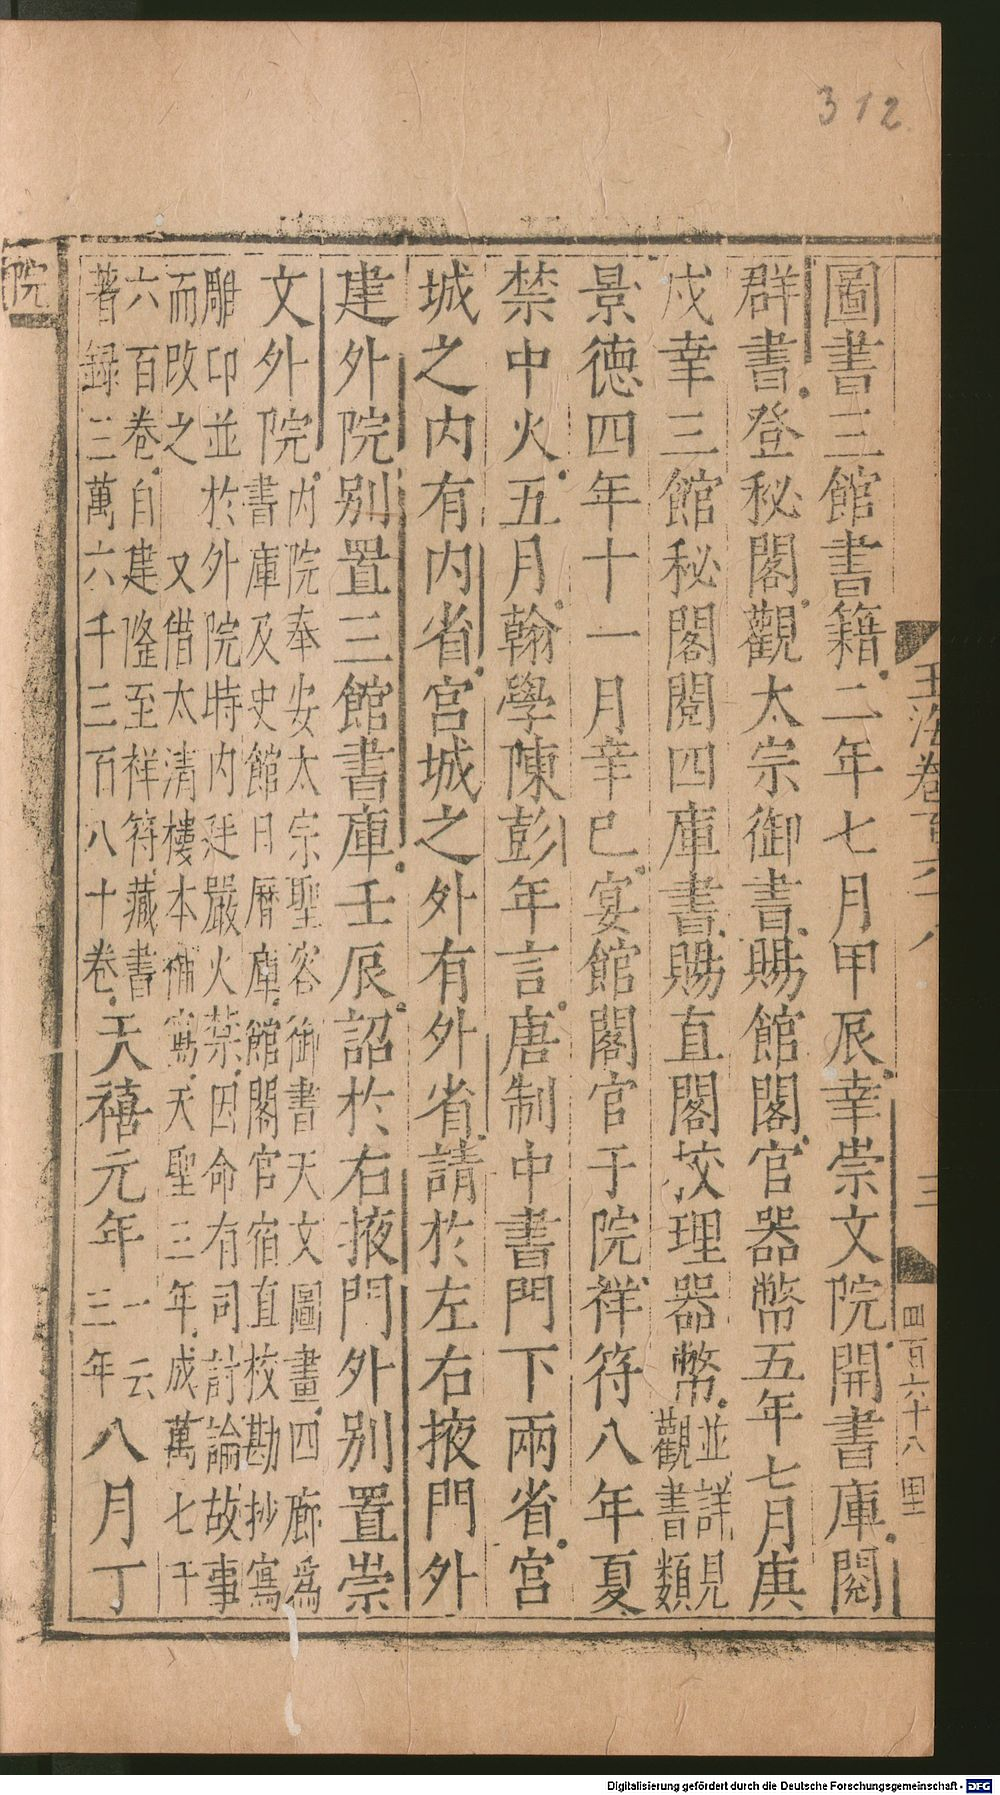 312
玉海卷百六八
三
四百六十八
圖書三館書籍二年七月甲辰幸崇文院開書庫閱
群書登秘閣觀太宗御書賜館閣官器幣五年七月庚
戍幸三館秘閣閱四庫書賜直閣挍理器幣並詳見
觀書類
景德四年十一月辛巳宴館閣官于院祥符八年夏
禁中火五月翰學陳彭年言唐制中書門下兩省宮
城之内有内省宮城之外有外省請於左右掖門外
建外院别置三館書庫壬辰詔於右掖門外别置崇
文外院内院奉安太宗聖容御書天文圖畫四廊爲
書庫及史館日曆庫館閣官宿直校勘抄寫
雕印並於外院時内廷嚴火禁因命有司討論故事
而改之 又借太清樓本補寫天聖三年成萬七千
六百卷自建隆至祥符藏書
著録三萬六千三百八十卷天禧元年一云
三年八月丁
院
Digitalisierung gefördert durch die Deutsche Forschungsgemeinschaft - DFG